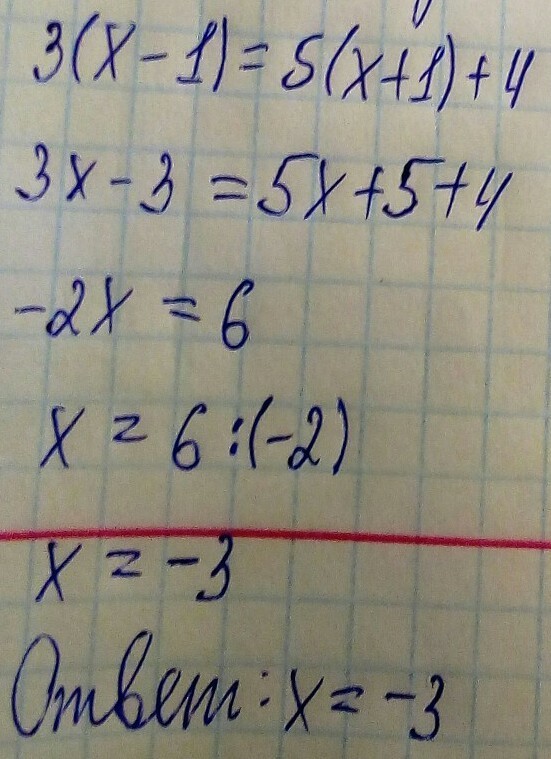 3(x-1)=5(x+1)+4
3x-3=5x+5+4
-2x=6
x=6:(-2)
x=-3
Ответ: x=-3